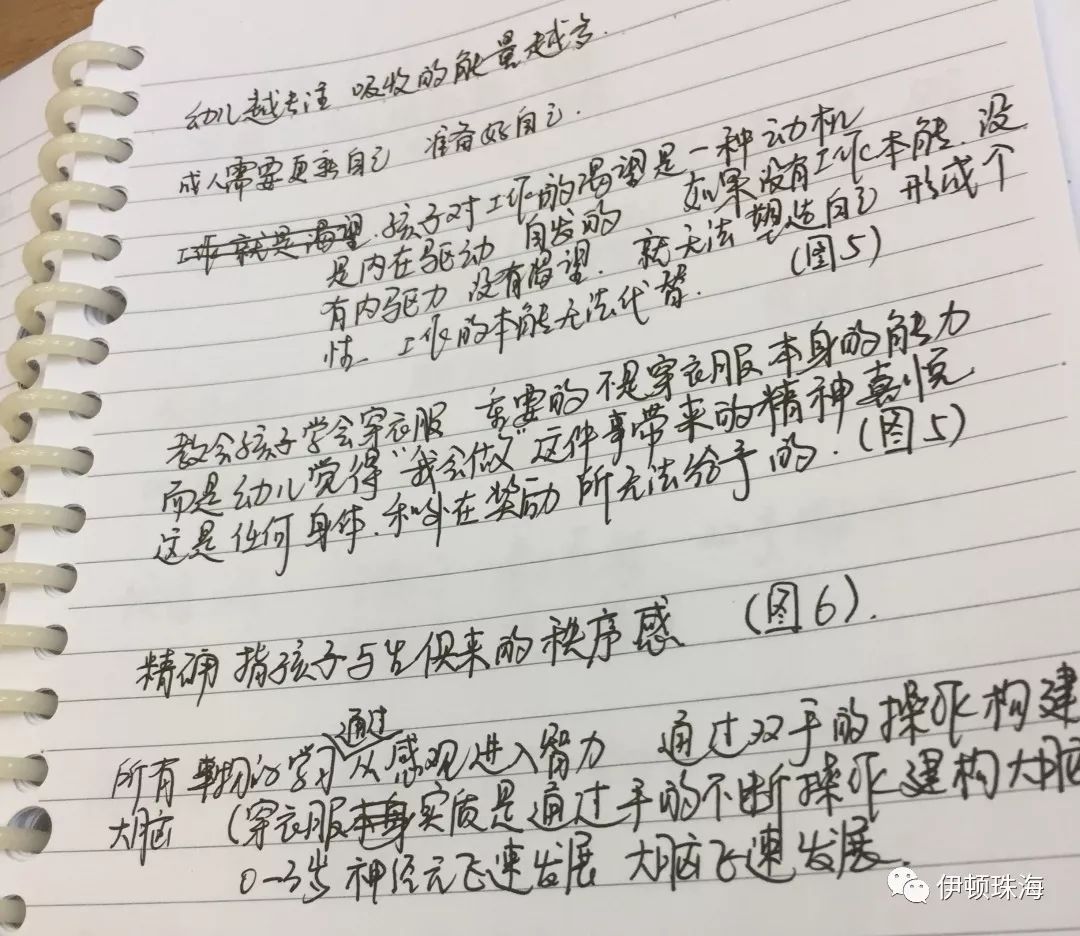 幼儿越专注 吸收的能量越多.
成人需要更新自己 准备好自己.
工作就是渴望.孩子对工作的渴望是一种动机
是内在驱动 自发的 如果没有工作本能.没
有内驱力 没有渴望.就无法塑造自己 形成个
性. 工作的本能无法代替. (图5)
教会孩子学会穿衣服 重要的不是穿衣服本身的能力
而是幼儿觉得"我会做"这件事带来的精神喜悦
这是任何身体.和外在奖励所无法给予的.(图5)
精确 指孩子与生俱来的秩序感 (图6).
通过
所有事物的学习从感观进入智力 通过双手的操作构建
大脑 (穿衣服本身实质是通过手的不断操作建构大脑
0-3岁神经元飞速发展 大脑飞速发展.
伊顿珠海